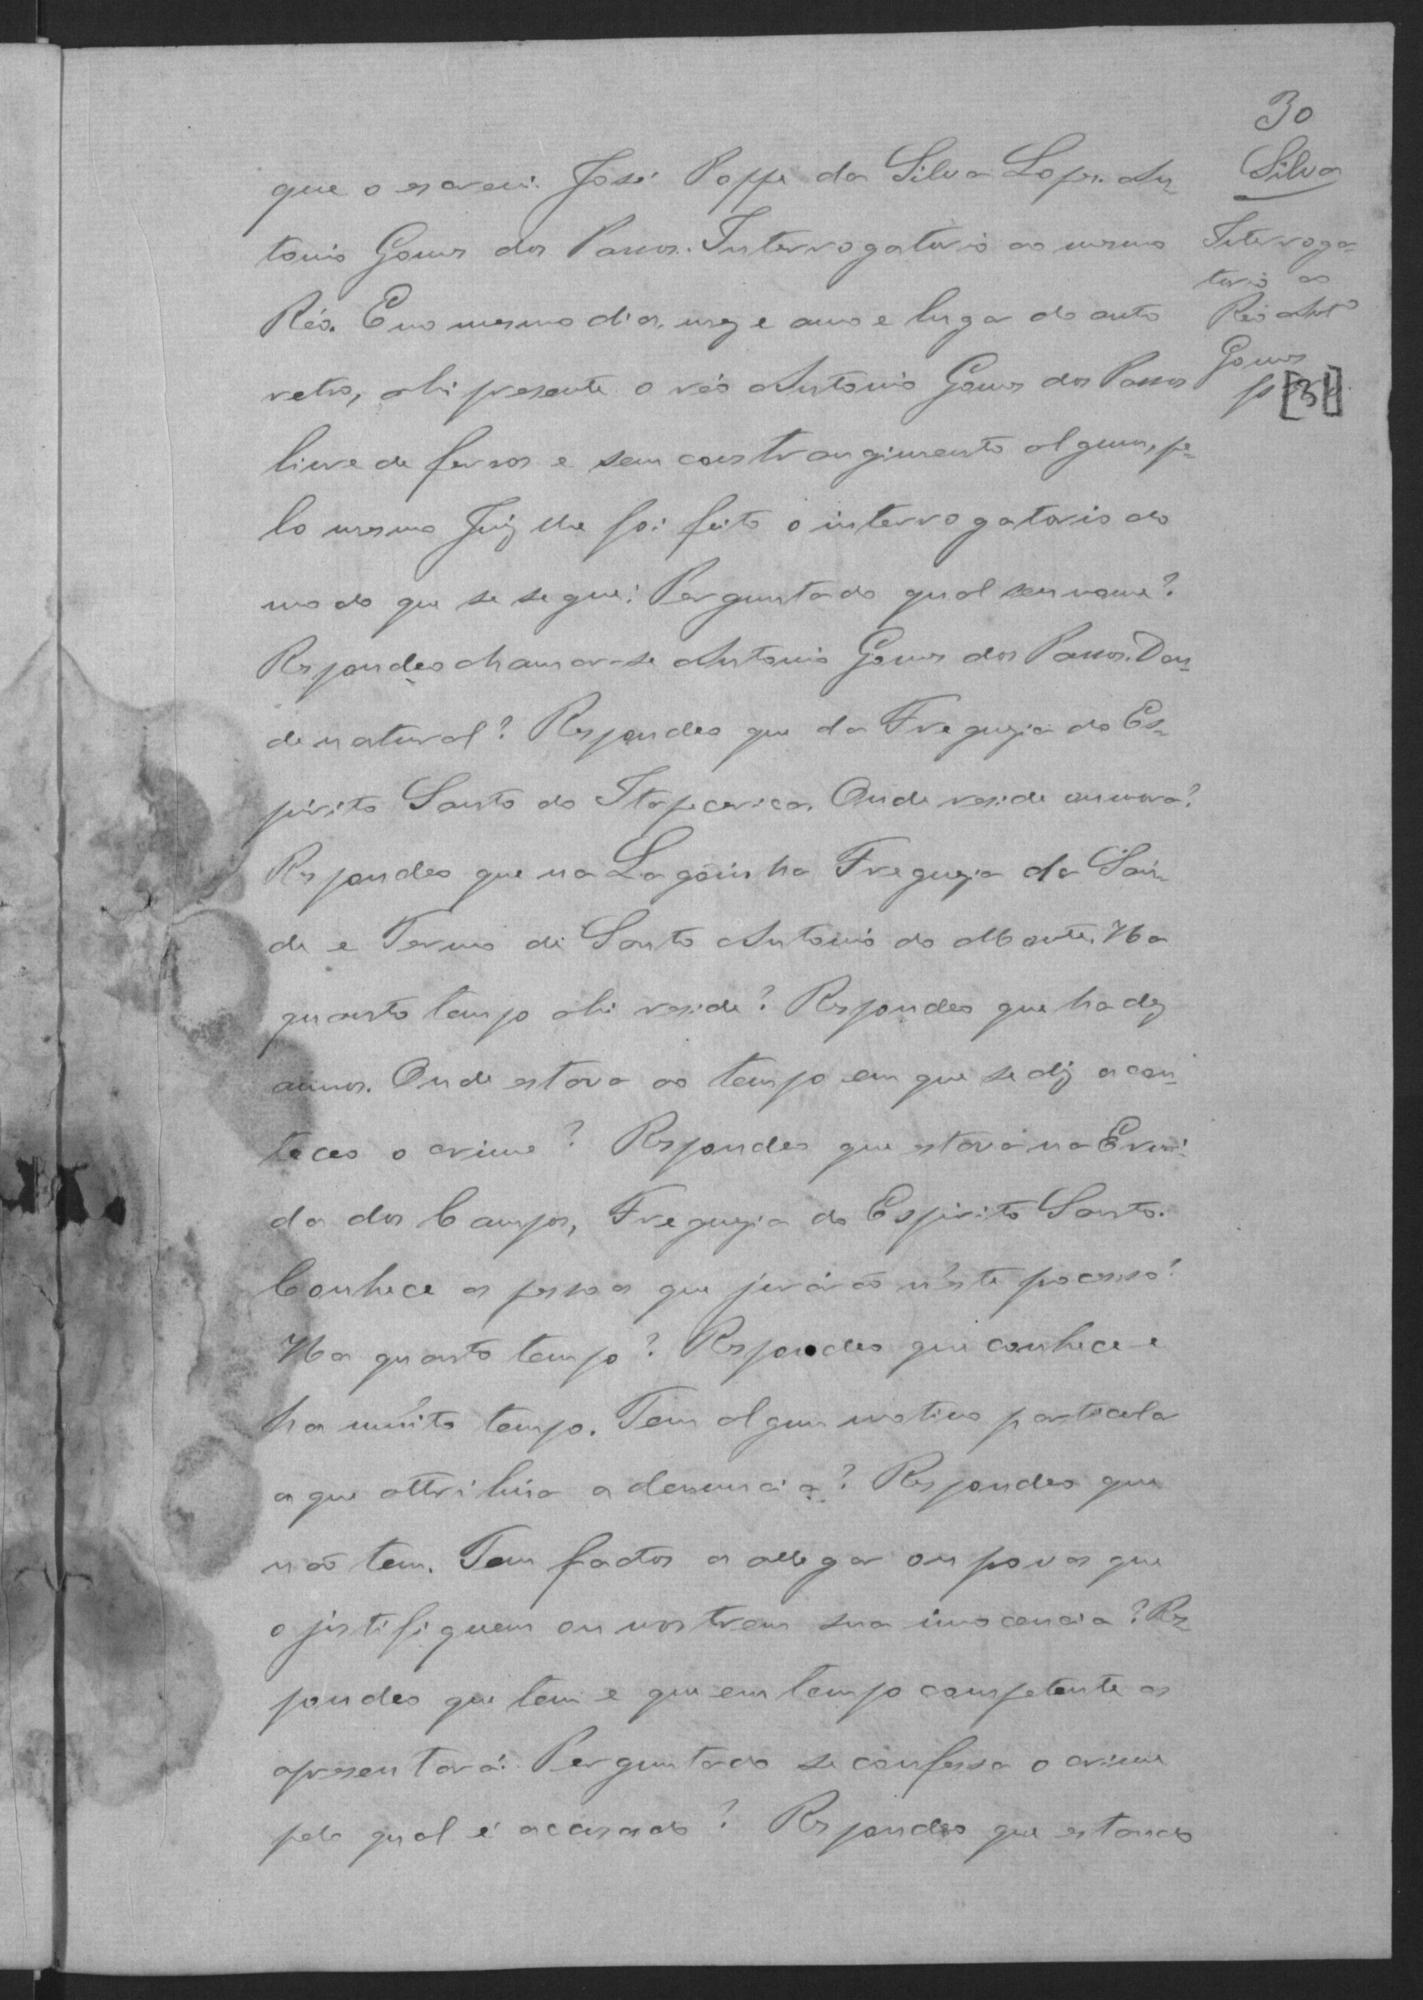 30
Silva
que o escrevi. José Poppe da Silva Lopes. An-
tonio Gomes dos Passos. Interrogatorio ao mesmo
Réo. E no mesmo dia, mez e anno e lugar do auto
retro, ahi presente o réo Antonio Gomes dos Passos
livre de ferros e sem constrangimento algum, pe-
lo mesmo Juiz lhe foi feito o interrogatorio do
modo que se segue: Perguntado qual seu nome?
Respondeo chamar-se Antonio Gomes dos Passos. Don-
de natural? Respondeo que da Freguezia do Es-
pirito Santo do Itapecerica. Onde reside ou mora?
Respondeo que na Lagoinha Freguezia da Saú-
de e Termo de Santo Antonio do Monte. Ha
quanto tempo ahi reside? Respondeo que ha dez
annos. Onde estava ao tempo em que se diz acon-
teceo o crime? Respondeo que estava na Ermi-
da dos Campos, Freguezia do Espirito Santo.
Conhece as pessoas que jurárão n'este processo?
Ha quanto tempo? Respondeo que conhece e
ha muito tempo. Tem algum motivo particular
a que attribua a denuncia? Respondeo que
não tem. Tem factos a allegar ou provas que
o justifiquem ou mostrem sua innocencia? Res-
pondeo que tem e que em tempo competente as
apresentará. Perguntado se confessa o crime
pelo qual é accusado? Respondeo que estando
Interroga-
torio ao
Réo Anto
Gomes
[31]